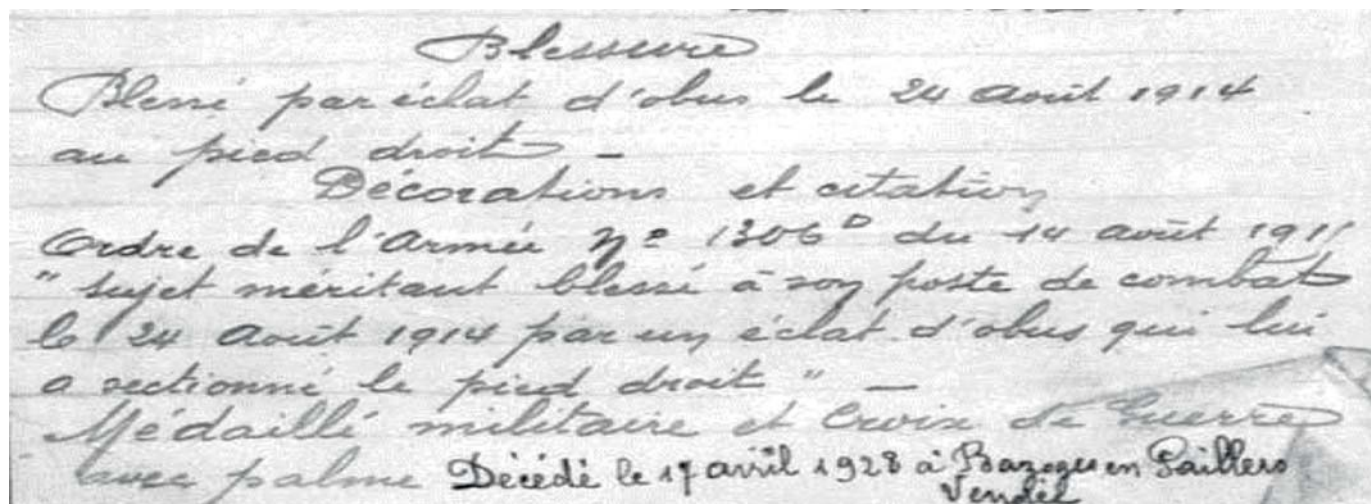 Blessure
Blessé par éclat d'obus le 24 Août 1914
au pied droit -
Décorations et citation
Ordre de l'Armée N° 1306 D du 14 août 191
" sujet méritant blessé à son poste de combat
le 24 Août 1914 par un éclat d'obus qui lui
a sectionné le pied droit " -
Médaillé militaire et Croix de Guerre
avec palme Décédé le 17 avril 1928 à Bazoges en Paillers
Vendée